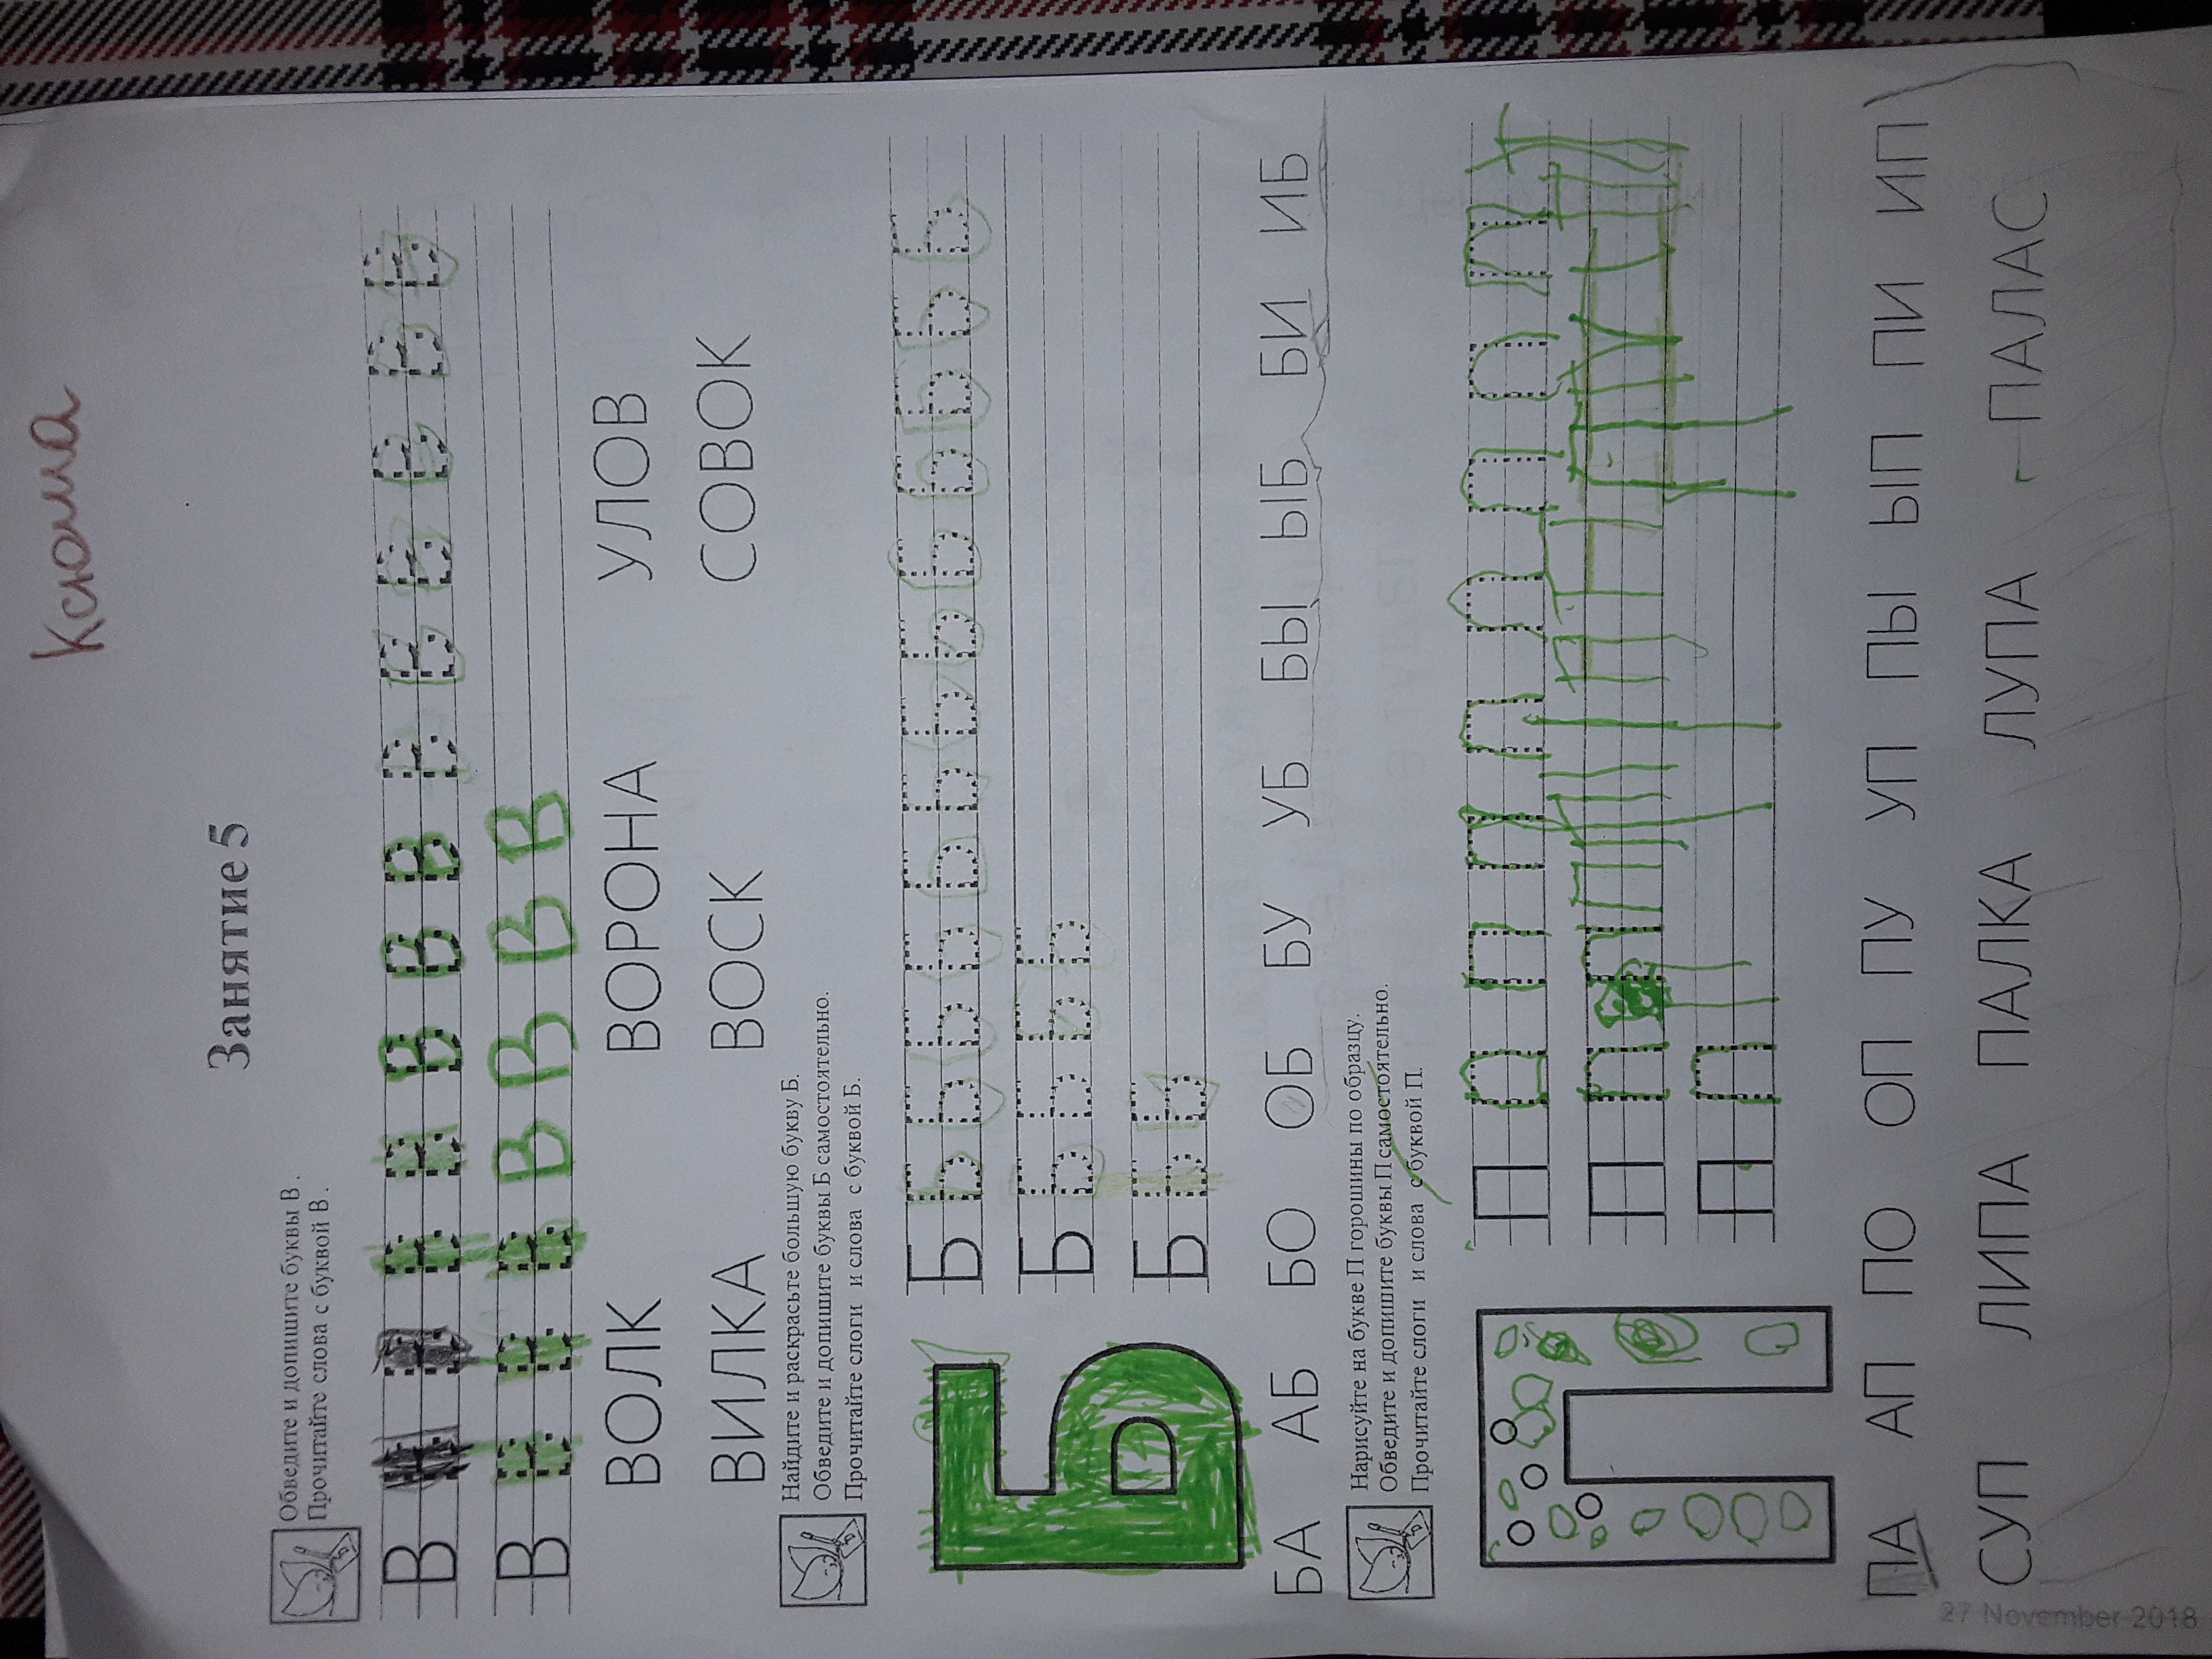 Ксюша
Занятие 5
Обведите и допишите буквы В .
Прочитайте слова с буквой В .
В В В В В В В В В В В В В В
В В В В В В В В В
ВОЛК ВОРОНА УЛОВ
ВИЛКА ВОСК СОВОК
Найдите и раскрасьте большую букву Б.
Обведите и допишите буквы Б самостоятельно.
Прочитайте слоги и слова с буквой Б.
Б
Б Б Б Б Б Б Б Б Б Б Б Б Б Б
Б Б Б Б Б
Б Б Б
БА АБ БО ОБ БУ УБ БЫ ЫБ БИ ИБ
Нарисуйте на букве П горошины по образцу.
Обведите и допишите буквы П самостоятельно.
Прочитайте слоги и слова с буквой П.
П
П П П П П П П П П
П П П
П П
ПА АП ПО ОП ПУ УП ПЫ ЫП ПИ ИП
СУП ЛИПА ПАЛКА ЛУПА ПАЛАС
27 November 2018